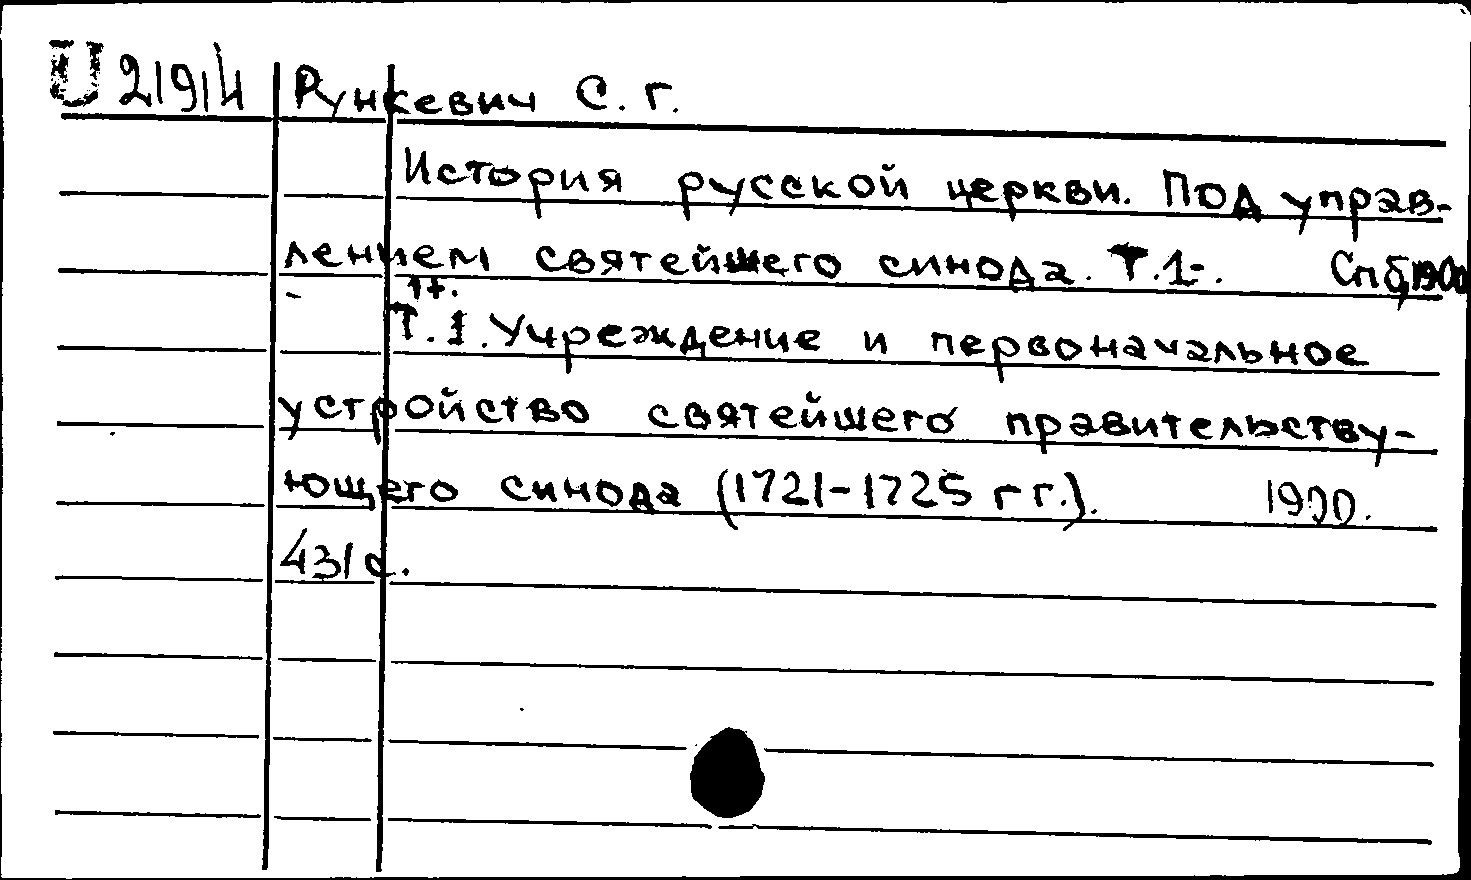 U 21914 Рункевич С. Г.
История русской церкви. Под управ-
лением святейшего синода. Т.1-. Спб, 1900
- 1т.
Т.1. Учреждение и первоначальное
устройство святейшего правительству-
ющего синода (1721-1725 гг.). 1900.
431 с.